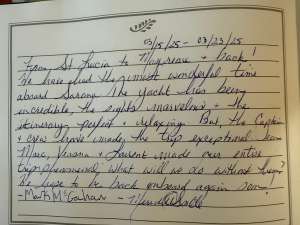 03/15/25 - 03/23/25
From St Lucia to Mayreau & back!
We have had the most wonderful time
aboard Sarana. The yacht has been
incredible, the sights marvelous, & the
itinerary perfect & relaxing. But, the Captain
& crew have made the trip exceptional.
Marc, & Laurent made our entire
trip phenomenal, what will we do without them?
We hope to be back onboard again soon!
- Mark McGahan -